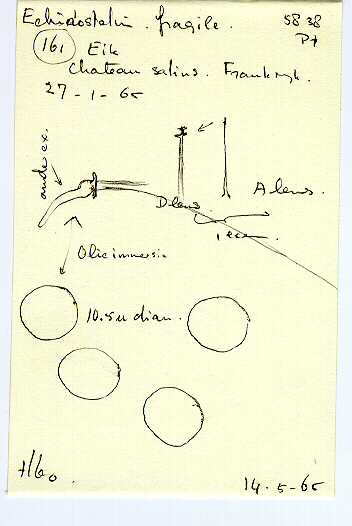 Echinostelium . fragile. 5838
Pt
161 Eik
Chateau salins. Frankryk.
27-1-65
ander ex.
D lens A lens.
Olie immersie
10.5 u diam.
H60 14-5-65